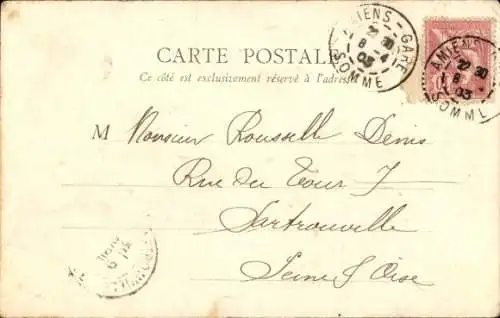 AMIENS - GARE
22 30
8 - 4
03
SOMME
AMIENS
22 30
8
03
SOMME
CARTE POSTALE
Ce côté est exclusivement réservé à l'adresse
M Monsieur Rousselle Denis
Rue du Tour 7
Sartrouville
Seine & Oise